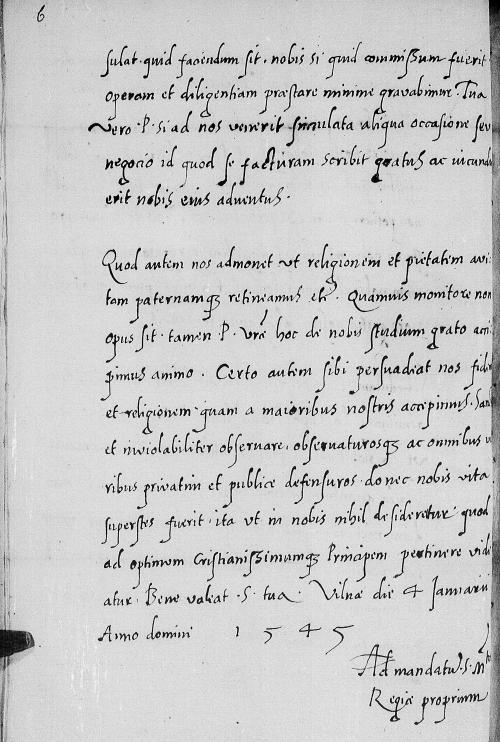 6
sulat quid faciendum sit. nobis si quid commissum fuerit
operam et diligentiam præstare minime gravabimur. Tua
vero P. si ad nos venerit simulata aliqua occasione seu
negocio id quod se facturam scribit gratus ac iucund
erit nobis eius adventus.
Quod autem nos admonet ut religionem et pietatem avi
tam paternamq; retineamus etc. Quamvis monitore non
opus sit. tamen P. Vræ hoc de nobis studium grato acci
pimus animo. Certo autem sibi persuadeat nos fidem
et religionem quam a maioribus nostris accepimus. San
et inviolabiliter observare, observaturosq; ac omnibus v
ribus privatim et publice defensuros. donec nobis vita
superstes fuerit. ita ut in nobis nihil desideretur quod
ad optimum Cristianissimumq; Principem pertinere vide
atur. Bene valeat S. tua. Vilnæ die 4 Januarii
Anno domini 1545
Ad mandatu. S. Mtis
Regiæ proprium